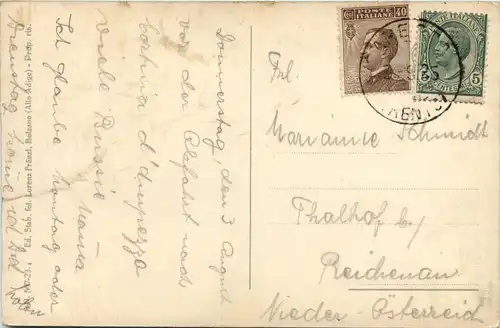 Donnerstag, den 3 August
vor der Abfahrt nach
Cortina d'Ampezzo
Viele Bussie
Mama
Ich glaube Montag oder
Dienstag
Ed. Stab. fot. Lorenz Fränzl, Bolzano (Alto Adige) - Prop. ris.
POSTE ITALIANE 40
POSTE ITALIANE
5 5
Frl.
Marianne Schmidt
Thalhof b/
Reichenau
Nieder-Österreich